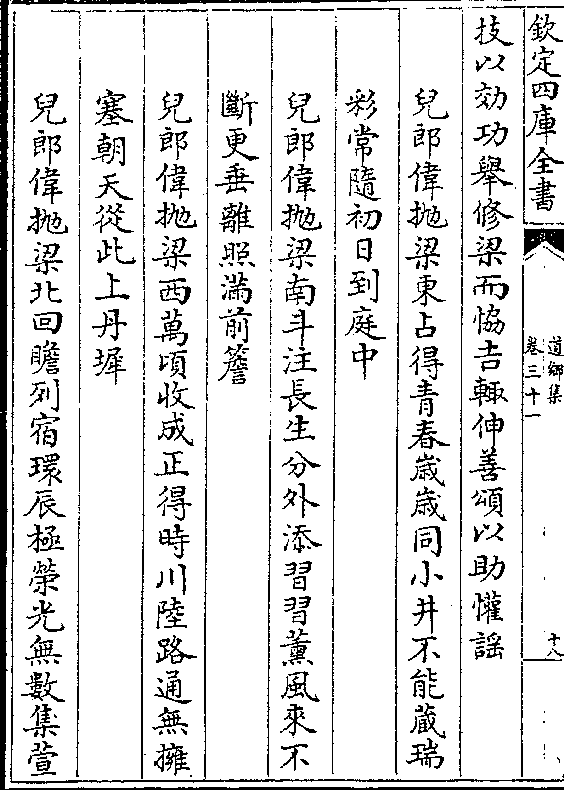 欽定四庫全書
道鄉集
卷三十一
十八
技以効功舉修梁而恊吉輙伸善頌以助懽謡
兒郎偉抛梁東占得青春歳歳同小井不能蔵瑞
彩常隨初日到庭中
兒郎偉抛梁南斗注長生分外添習習薫風來不
斷更垂離照滿前簷
兒郎偉抛梁西萬頃收成正得時川陸路通無擁
塞朝天從此上丹墀
兒郎偉抛梁北回瞻列宿環辰極榮光無數集萱